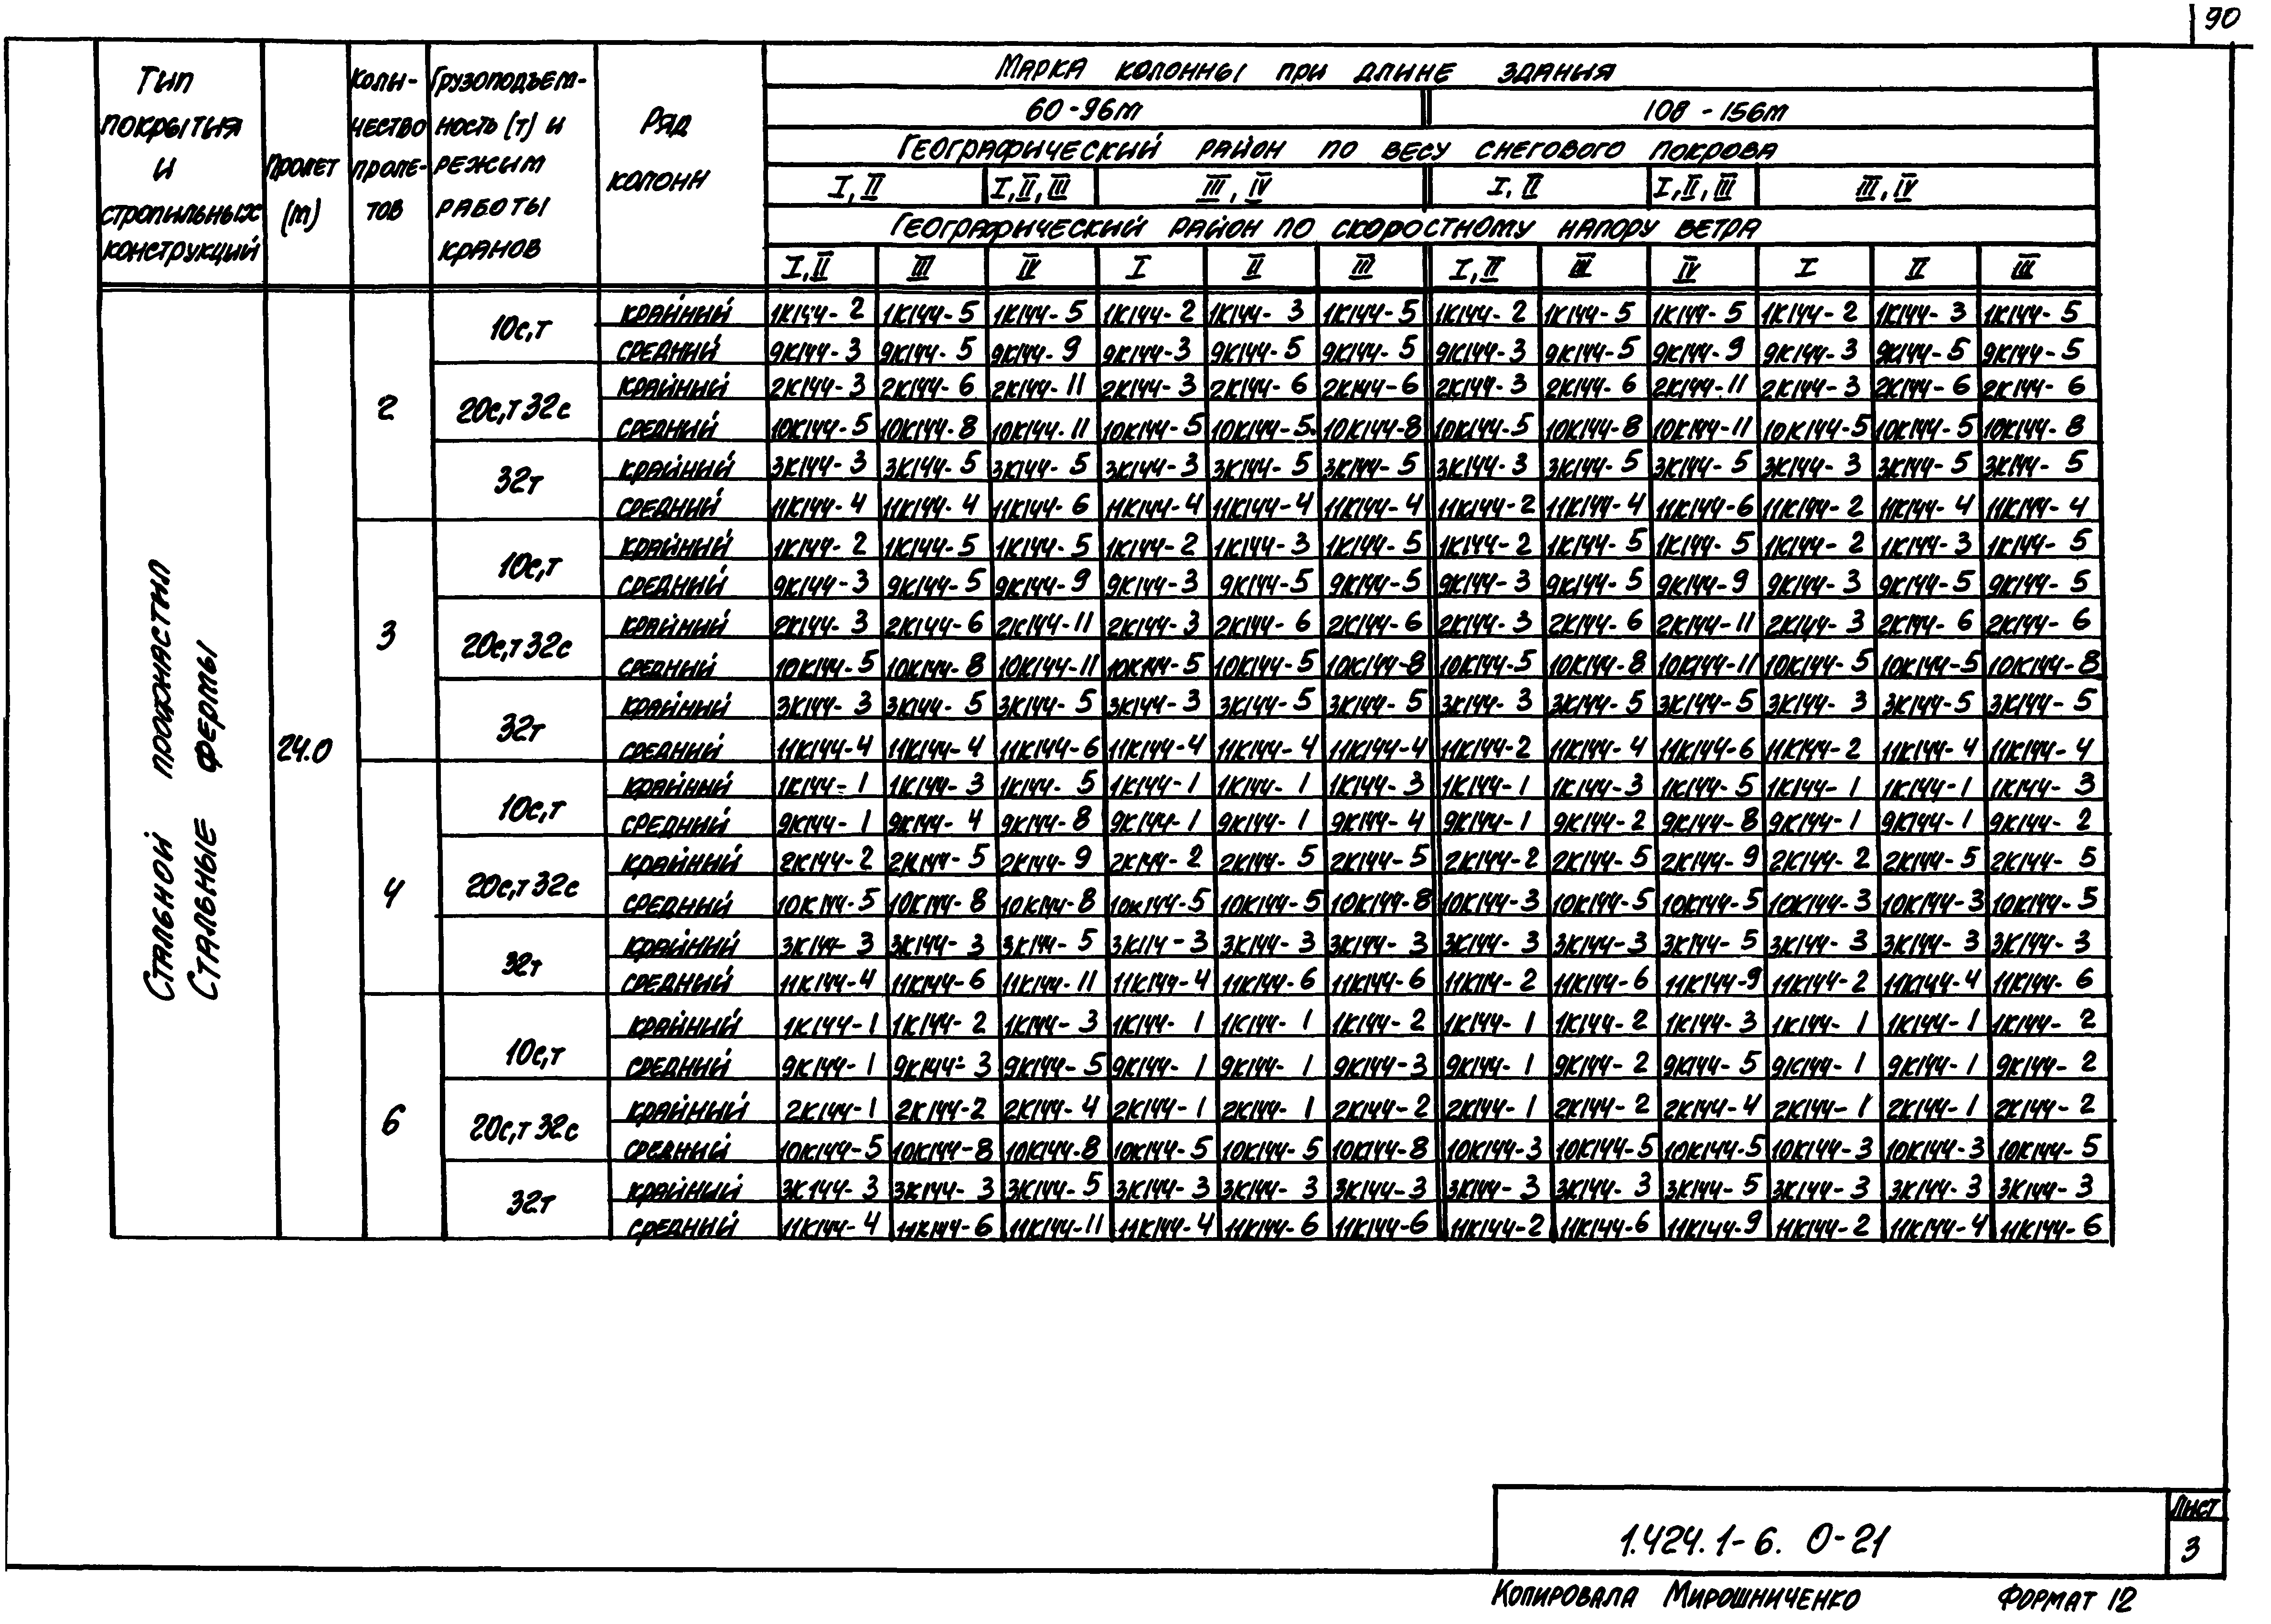 90
Тип покрытия и стропильных конструкций
Пролет (м)
Коли-чество проле-тов
Грузоподъем-ность (т) и режим работы кранов
Ряд колонн
Марка колонны при длине здания
60-96м 108-156м
Географический район по весу снегового покрова
I,II I,II,III III,IV I,II I,II,III III,IV
Географический район по скоростному напору ветра
I,II III IV I II III I,II III IV I II III
Стальной профнастил
Стальные фермы
24.0
2
10с,т
крайний 1К144-2 1К144-5 1К144-5 1К144-2 1К144-3 1К144-5 1К144-2 1К144-5 1К144-5 1К144-2 1К144-3 1К144-5
средний 9К144-3 9К144-5 9К144-9 9К144-3 9К144-5 9К144-5 9К144-3 9К144-5 9К144-9 9К144-3 9К144-5 9К144-5
20с,т 32с
крайний 2К144-3 2К144-6 2К144-11 2К144-3 2К144-6 2К144-6 2К144-3 2К144-6 2К144-11 2К144-3 2К144-6 2К144-6
средний 10К144-5 10К144-8 10К144-11 10К144-5 10К144-5 10К144-8 10К144-5 10К144-8 10К144-11 10К144-5 10К144-5 10К144-8
32т
крайний 3К144-3 3К144-5 3К144-5 3К144-3 3К144-5 3К144-5 3К144-3 3К144-5 3К144-5 3К144-3 3К144-5 3К144-5
средний 11К144-4 11К144-4 11К144-6 11К144-4 11К144-4 11К144-4 11К144-2 11К144-4 11К144-6 11К144-2 11К144-4 11К144-4
3
10с,т
крайний 1К144-2 1К144-5 1К144-5 1К144-2 1К144-3 1К144-5 1К144-2 1К144-5 1К144-5 1К144-2 1К144-3 1К144-5
средний 9К144-3 9К144-5 9К144-9 9К144-3 9К144-5 9К144-5 9К144-3 9К144-5 9К144-9 9К144-3 9К144-5 9К144-5
20с,т 32с
крайний 2К144-3 2К144-6 2К144-11 2К144-3 2К144-6 2К144-6 2К144-3 2К144-6 2К144-11 2К144-3 2К144-6 2К144-6
средний 10К144-5 10К144-8 10К144-11 10К144-5 10К144-5 10К144-8 10К144-5 10К144-8 10К144-11 10К144-5 10К144-5 10К144-8
32т
крайний 3К144-3 3К144-5 3К144-5 3К144-3 3К144-5 3К144-5 3К144-3 3К144-5 3К144-5 3К144-3 3К144-5 3К144-5
средний 11К144-4 11К144-4 11К144-6 11К144-4 11К144-4 11К144-4 11К144-2 11К144-4 11К144-6 11К144-2 11К144-4 11К144-4
4
10с,т
крайний 1К144-1 1К144-3 1К144-5 1К144-1 1К144-1 1К144-3 1К144-1 1К144-3 1К144-5 1К144-1 1К144-1 1К144-3
средний 9К144-1 9К144-4 9К144-8 9К144-1 9К144-1 9К144-4 9К144-1 9К144-2 9К144-8 9К144-1 9К144-1 9К144-2
20с,т 32с
крайний 2К144-2 2К144-5 2К144-9 2К144-2 2К144-5 2К144-5 2К144-2 2К144-5 2К144-9 2К144-2 2К144-5 2К144-5
средний 10К144-5 10К144-8 10К144-8 10К144-5 10К144-5 10К144-8 10К144-3 10К144-5 10К144-5 10К144-3 10К144-3 10К144-5
32т
крайний 3К144-3 3К144-3 3К144-5 3К114-3 3К144-3 3К144-3 3К144-3 3К144-3 3К144-5 3К144-3 3К144-3 3К144-3
средний 11К144-4 11К144-6 11К144-11 11К144-4 11К144-6 11К144-6 11К114-2 11К144-6 11К144-9 11К144-2 11К144-4 11К144-6
6
10с,т
крайний 1К144-1 1К144-2 1К144-3 1К144-1 1К144-1 1К144-2 1К144-1 1К144-2 1К144-3 1К144-1 1К144-1 1К144-2
средний 9К144-1 9К144-3 9К144-5 9К144-1 9К144-1 9К144-3 9К144-1 9К144-2 9К144-5 9К144-1 9К144-1 9К144-2
20с,т 32с
крайний 2К144-1 2К144-2 2К144-4 2К144-1 2К144-1 2К144-2 2К144-1 2К144-2 2К144-4 2К144-1 2К144-1 2К144-2
средний 10К144-5 10К144-8 10К144-8 10К144-5 10К144-5 10К144-8 10К144-3 10К144-5 10К144-5 10К144-3 10К144-3 10К144-5
32т
крайний 3К144-3 3К144-3 3К144-5 3К144-3 3К144-3 3К144-3 3К144-3 3К144-3 3К144-5 3К144-3 3К144-3 3К144-3
средний 11К144-4 11К144-6 11К144-11 11К144-4 11К144-6 11К144-6 11К144-2 11К144-6 11К144-9 11К144-2 11К144-4 11К144-6
1.424.1-6. 0-21
Лист
3
Копировала Мирошниченко Формат 12